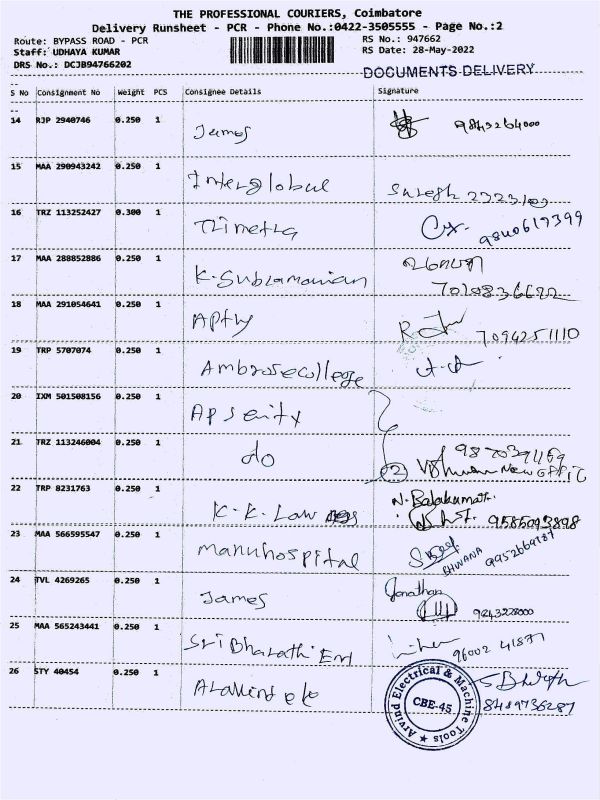 THE PROFESSIONAL COURIERS, Coimbatore
Delivery Runsheet - PCR - Phone No.:0422-3505555 - Page No.:2
Route: BYPASS ROAD - PCR
RS No.: 947662
Staff: UDHAYA KUMAR
RS Date: 28-May-2022
DRS No.: DCJB94766202
DOCUMENTS DELIVERY
S No Consignment No Weight PCS Consignee Details Signature
14 RJP 2940746 0.250 1 James
15 MAA 290943242 0.250 1 Interglobal Suresh
16 TRZ 113252427 0.300 1 Trimetra 9840617399
17 MAA 288852886 0.250 1 K. Subramanian
18 MAA 291054641 0.250 1 Apthy 7094251110
19 TRP 5707074 0.250 1 Ambrose college
20 IXM 501508156 0.250 1
21 TRZ 113246004 0.250 1 do 2
22 TRP 8231763 0.250 1 K. K. Law N. Balakumar
9585093898
23 MAA 566595547 0.250 1 manuhospital BHWANA 9952669787
24 TVL 4269265 0.250 1 James Jonathan
9243228000
25 MAA 565243441 0.250 1 Sri Bharathi Ent 96002 41877
26 STY 40454 0.250 1 8489736287
Arvind Electrical & Machine Tools
CBE-45